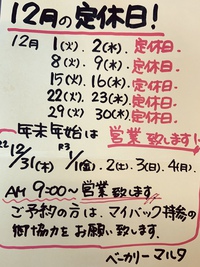 12月の定休日!
12月 1(火). 2(水). 定休日.
8(火). 9(水). 定休日.
15(火). 16(水). 定休日.
22(火). 23(水). 定休日.
29(火). 30(水). 定休日.
年末年始は 営業致します!
12/31(木) R3 1/1(金). 2(土). 3(日). 4(月).
AM 9:00~営業致します.
ご予約の方は、マイバック持参の
御協力を お願い致します。
ベーカリー マルタ